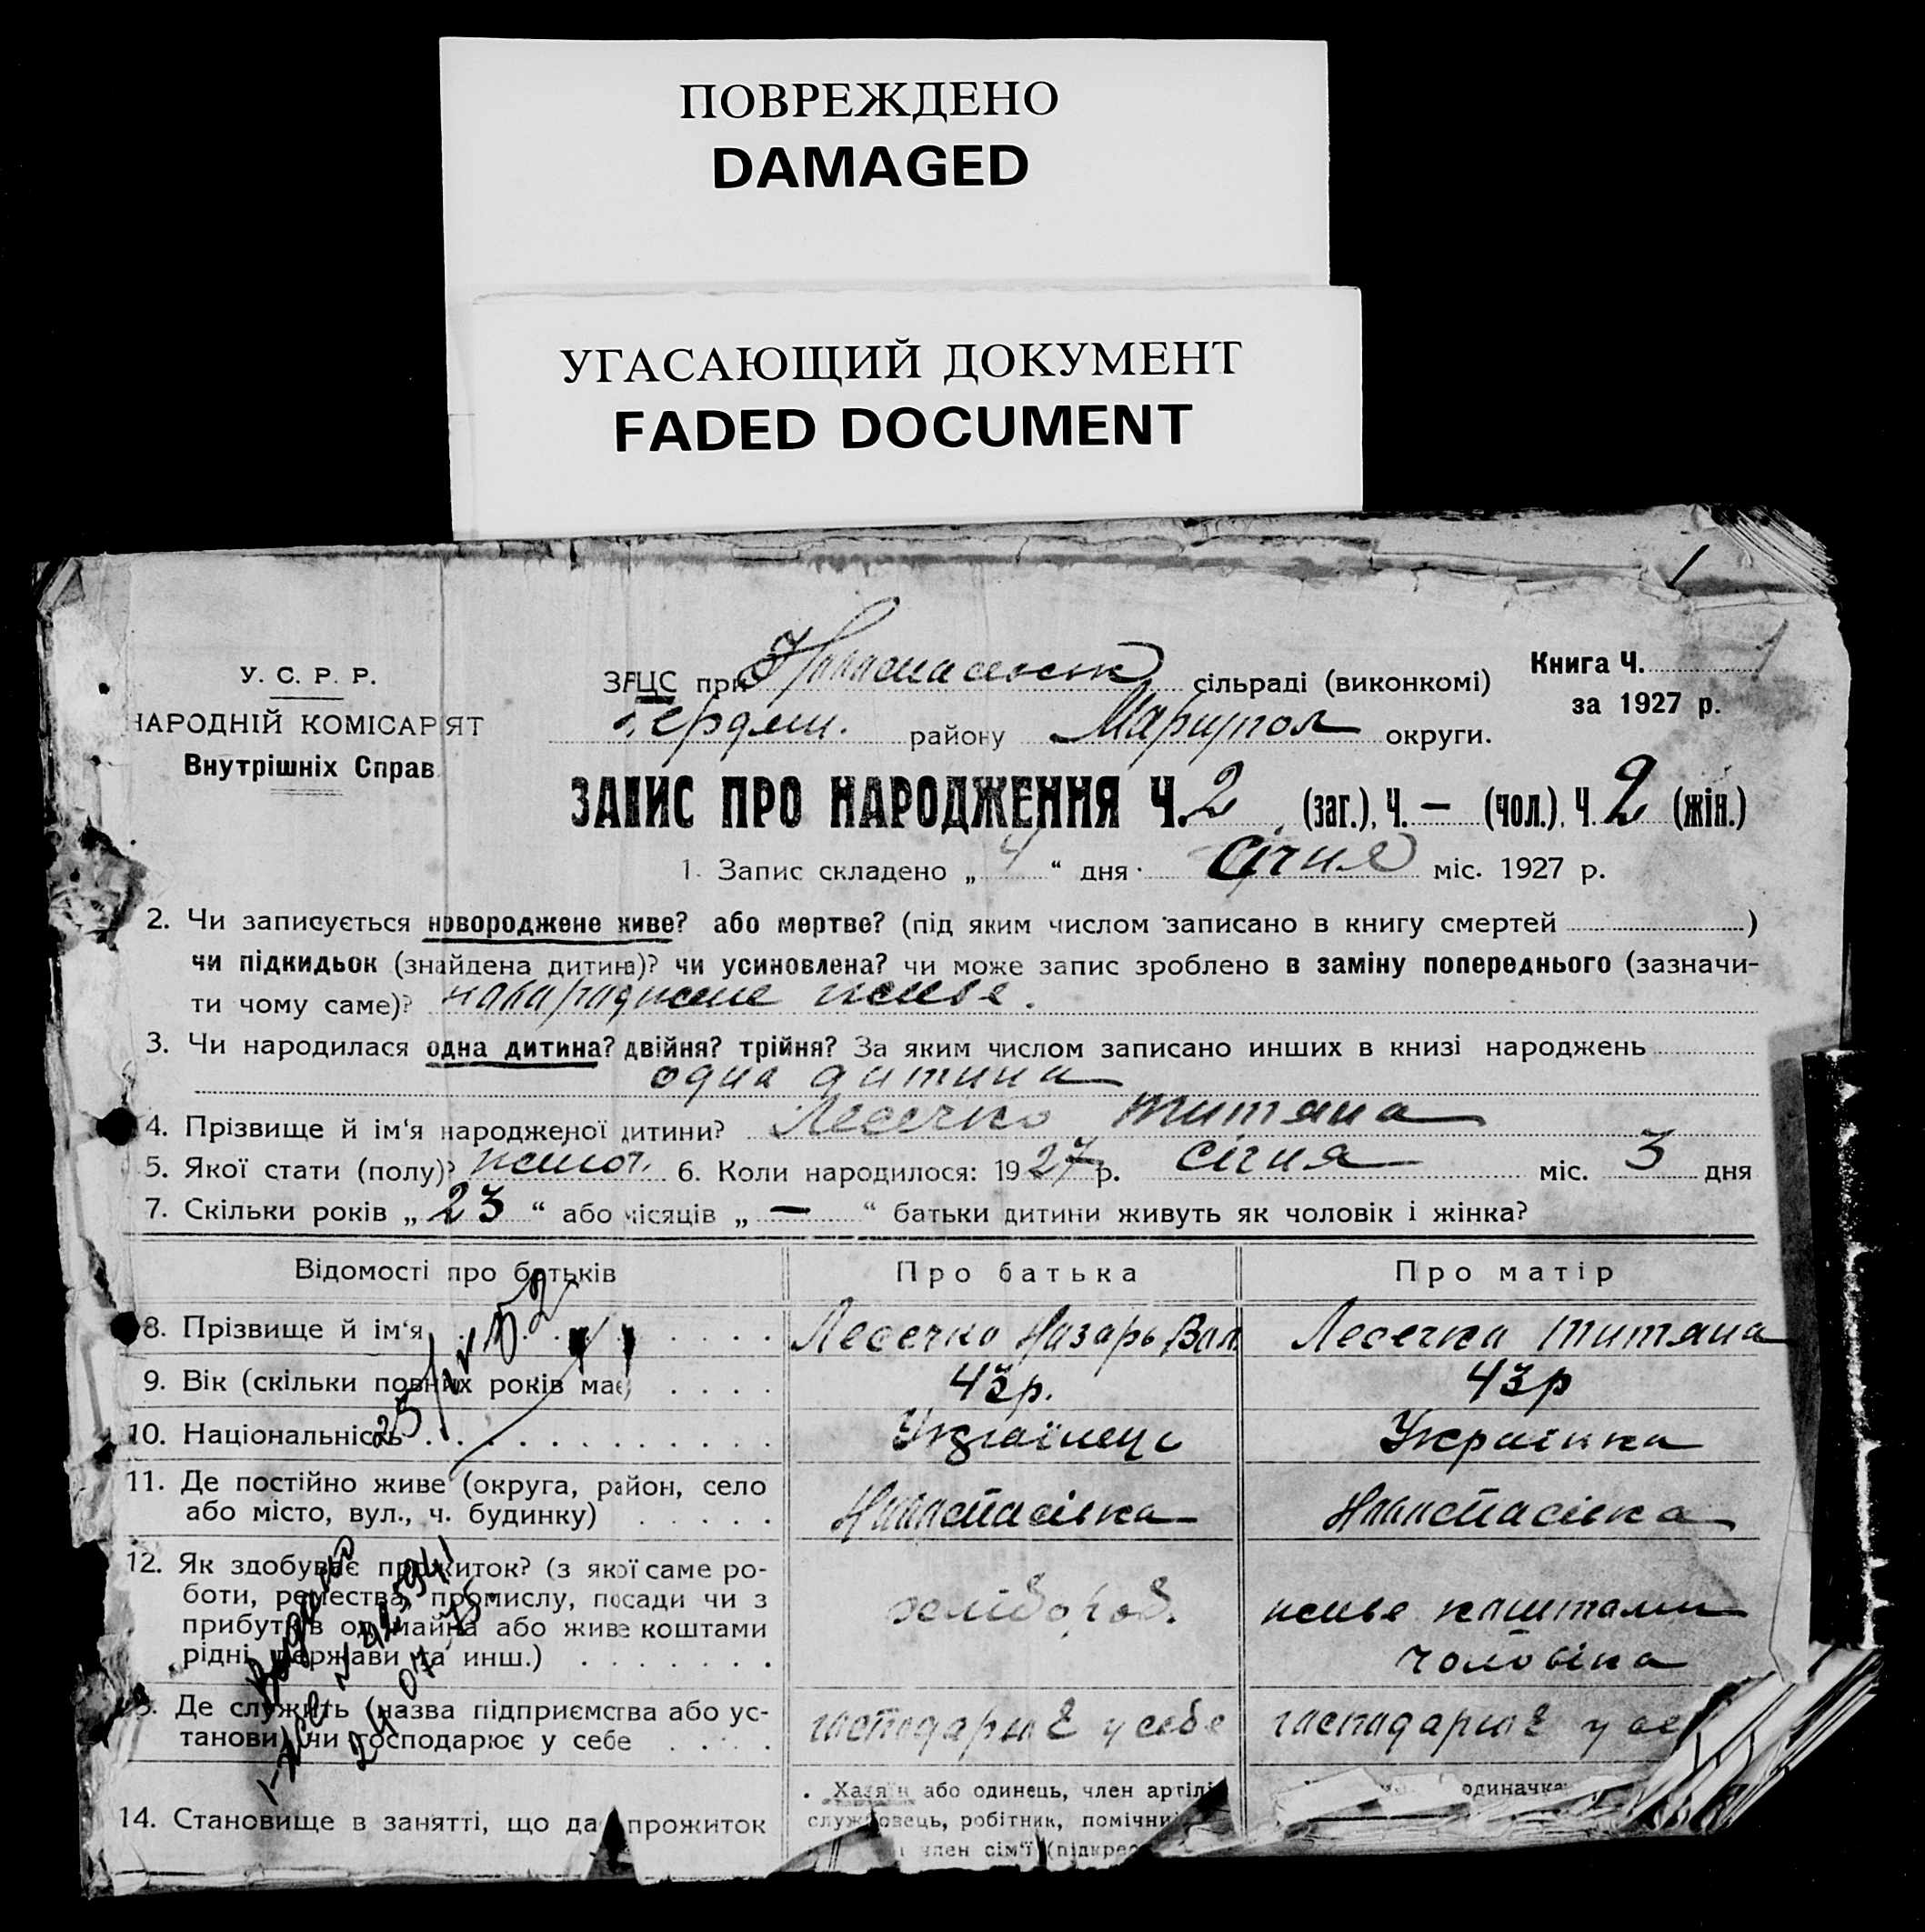 ПОВРЕЖДЕНО
DAMAGED
УГАСАЮЩИЙ ДОКУМЕНТ
FADED DOCUMENT
У. С. Р. Р.
НАРОДНІЙ КОМІСАРІЯТ
Внутрішніх Справ
ЗАЦС при сільраді (виконкомі)
району Маріупол округи.
Книга Ч.
за 1927 р.
ЗАПИС ПРО НАРОДЖЕННЯ Ч. 2 (заг.), Ч. — (чол.), Ч. 2 (жін.)
1. Запис складено „ 4 “ дня Січня міс. 1927 р.
2. Чи записується новороджене живе? або мертве? (під яким числом записано в книгу смертей )
чи підкидьок (знайдена дитина)? чи усиновлена? чи може запис зроблено в заміну попереднього (зазначи-
ти чому саме)? живе.
3. Чи народилася одна дитина? двійня? трійня? За яким числом записано инших в книзі народжень
одна дитина
4. Прізвище й ім'я народженої дитини? Лесечко Титяна
5. Якої стати (полу)? жіноч. 6. Коли народилося: 1927 р. січня міс. 3 дня
7. Скільки років „ 23 “ або місяців „ — “ батьки дитини живуть як чоловік і жінка?
Відомості про батьків
Про батька
Про матір
8. Прізвище й ім'я
Лесечко Назарь Вал
Лесечка Титяна
9. Вік (скільки повних років має)
43р.
43р
10. Національність
Українець
Украінка
11. Де постійно живе (округа, район, село
або місто, вул., ч. будинку)
12. Як здобуває прожиток? (з якої саме ро-
боти, ремества, промислу, посади чи з
прибутків од майна або живе коштами
рідні, держави та инш.)
хлібороб.
живе каштами
чоловіка
13. Де служить (назва підприємства або ус-
танови) чи господарює у себе
господарює у себе
господарює у се
25/IV 52
14. Становище в занятті, що дає прожиток
Хазяїн або одинець, член артілі
службовець, робітник, помічни
член сім'ї (підкрес
одиначка